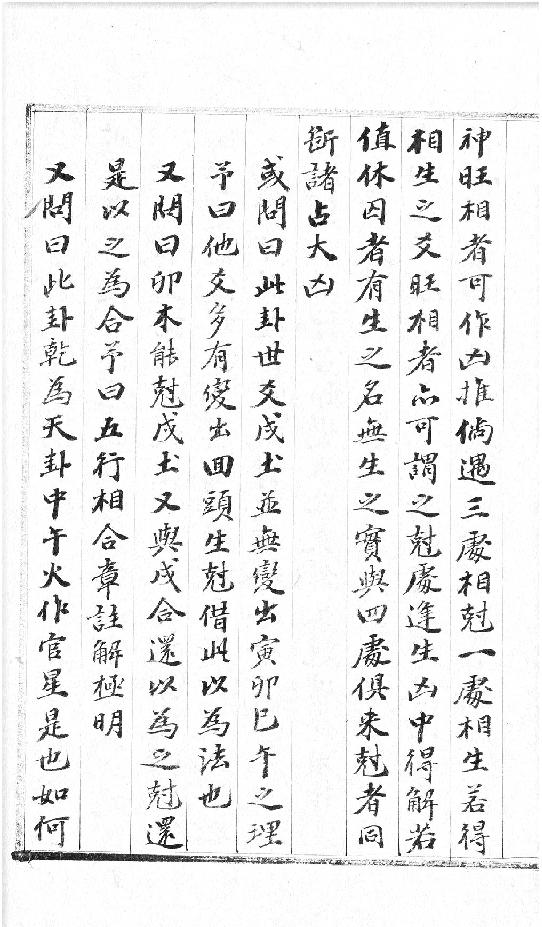 神旺相者可作凶推倘遇三處相尅一處相生若得
相生之爻旺相者亦可謂之尅處逢生凶中得解若
值休囚者有生之名無生之實與四處俱来尅者同
斷諸占大凶
或問曰此卦世爻戌土並無變出寅卯巳午之理
予曰他爻多有變出囬頭生尅借此以為法也
又問曰卯木能尅戌土又與戌合還以為之尅還
是以之為合予曰五行相合章註解極明
又問曰此卦乾為天卦中午火作官星是也如何